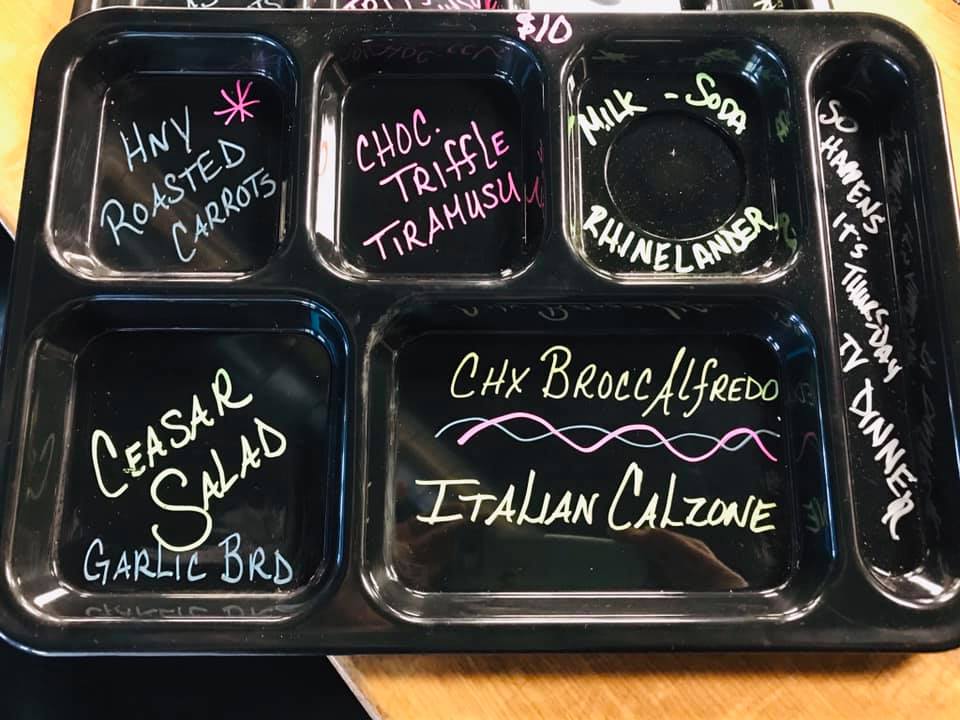 $10
HNY
ROASTED
CARROTS
CHOC.
TRIffLE
TIRAMUSU
MILK - SODA
RHINELANDER
SO
HAPPENS
IT'S THURSDAY
TV DINNER
CEASAR
SALAD
GARLIC BRD
CHX BROCC Alfredo
ITALIAN CALZONE